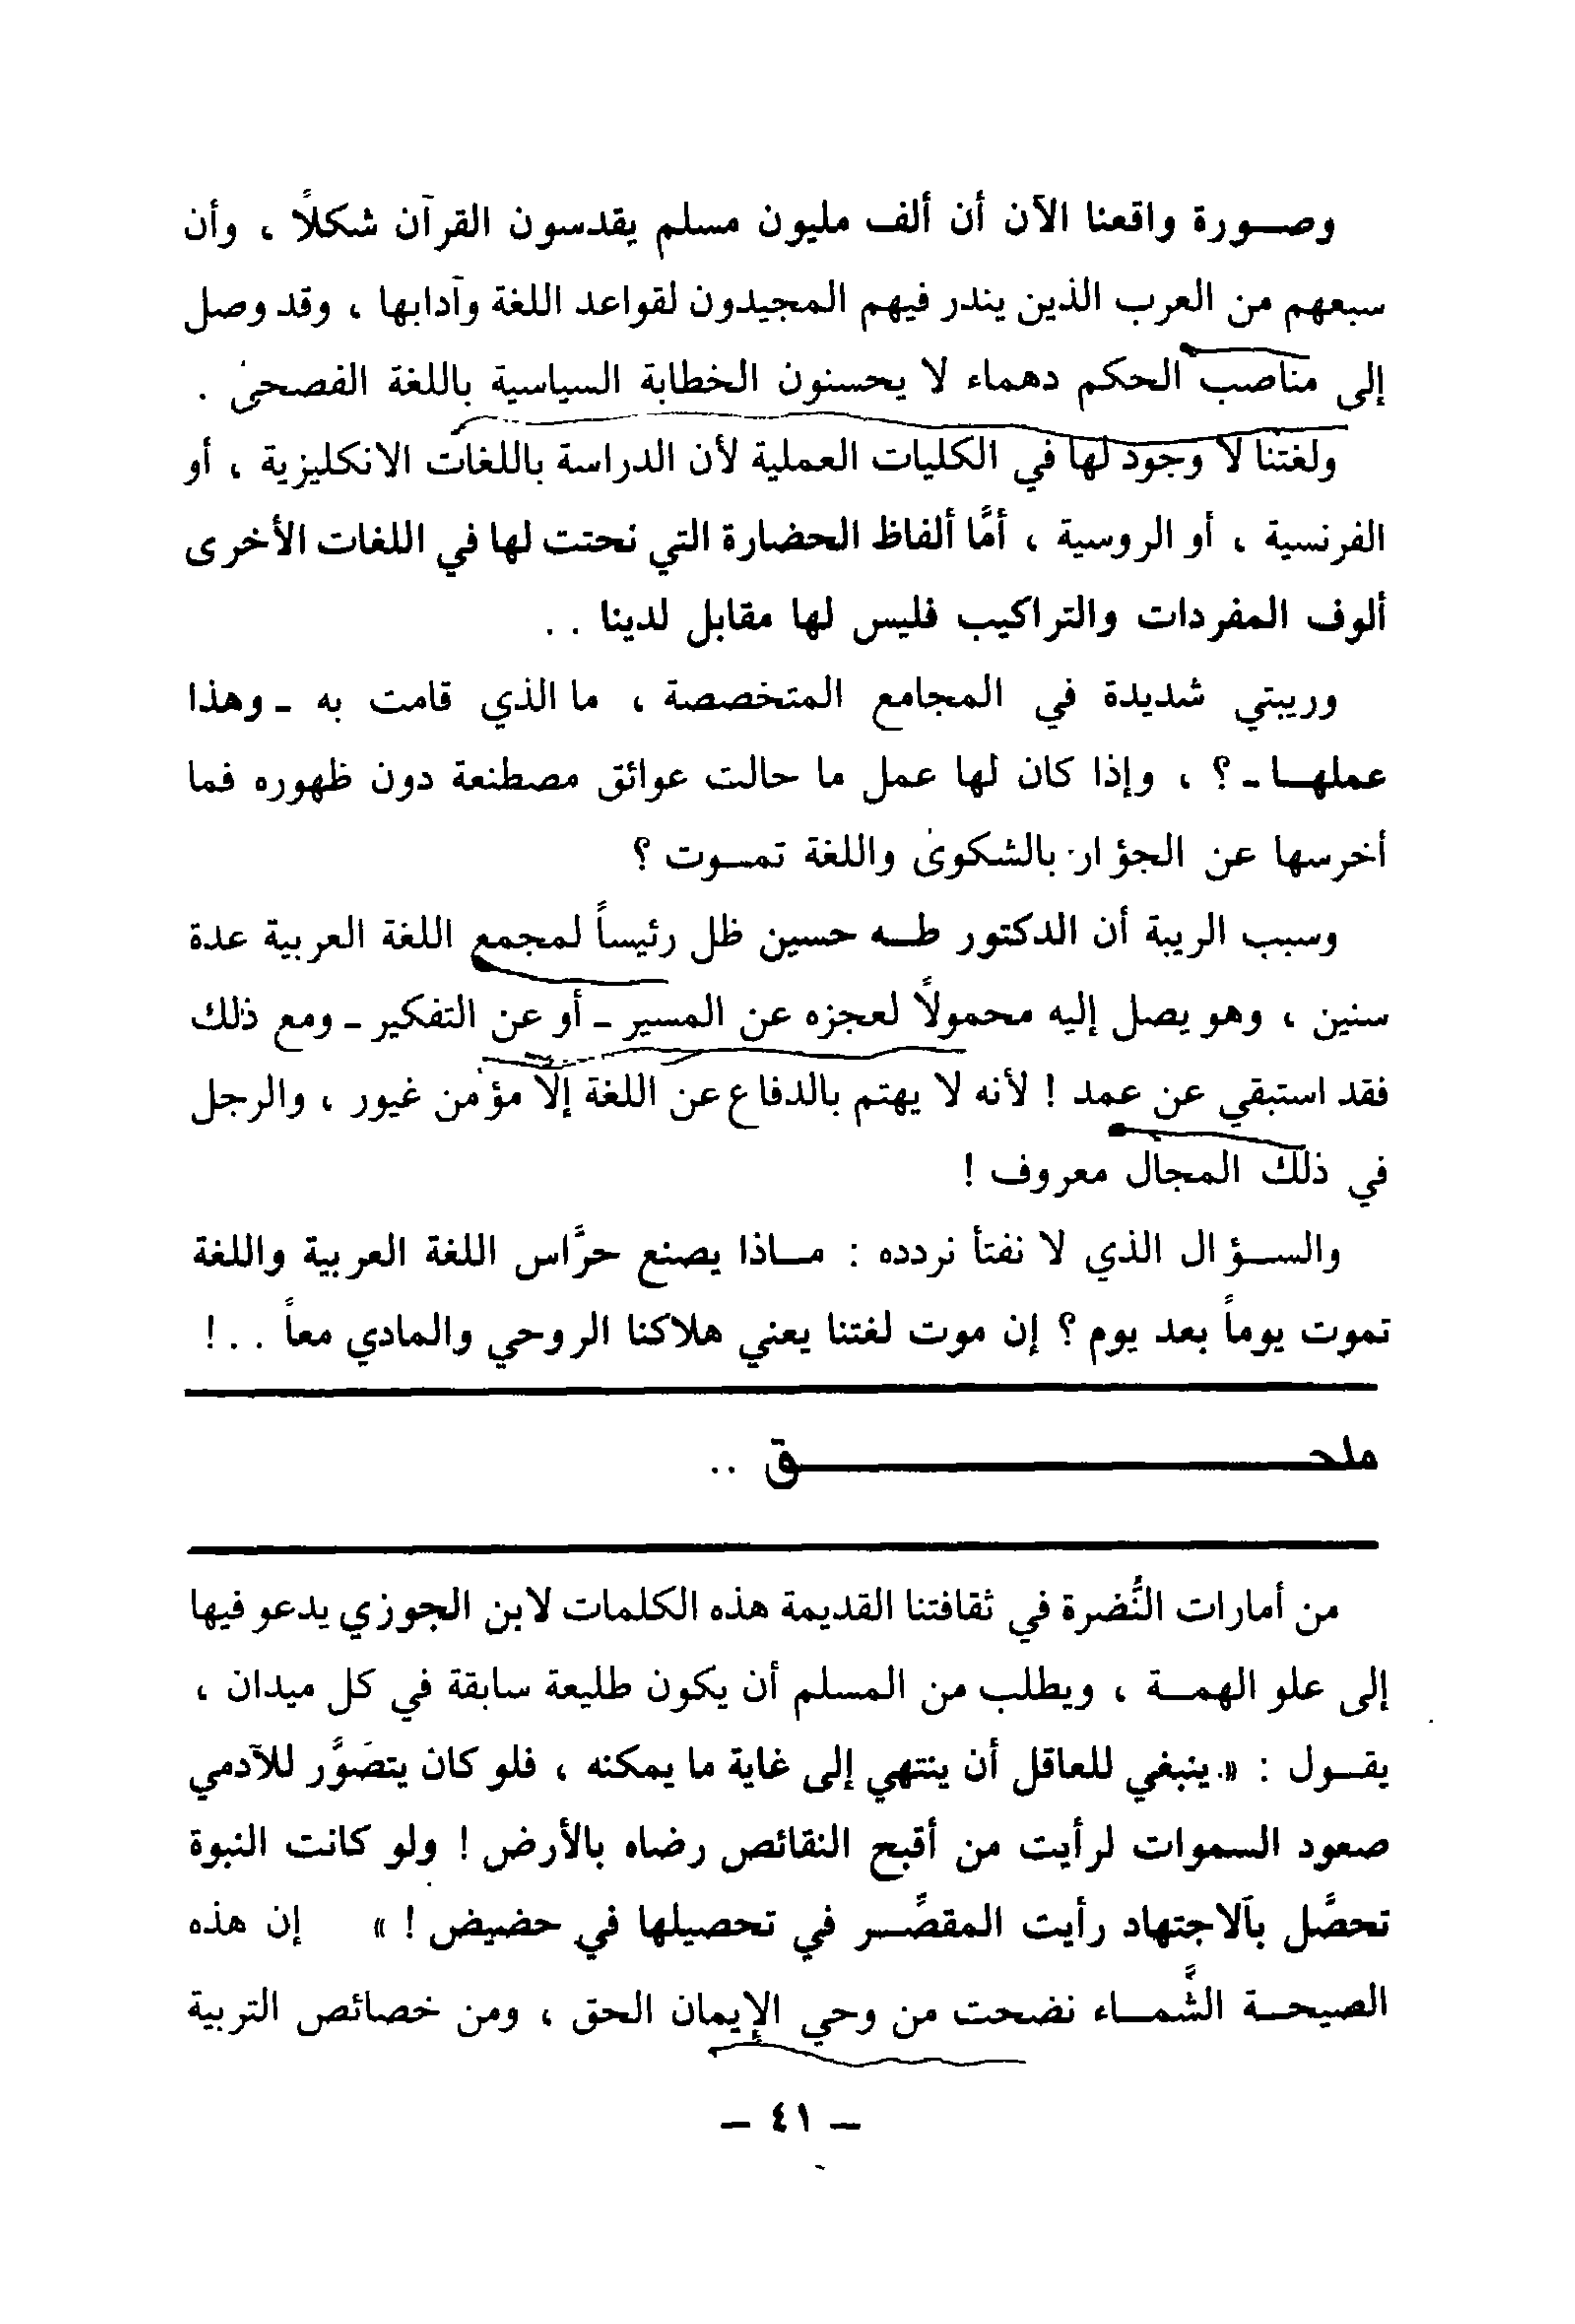 وصورة واقعنا الآن أن ألف مليون مسلم يقدسون القرآن شكلاً ، وأن
سبعهم من العرب الذين يندر فيهم المجيدون لقواعد اللغة وآدابها ، وقد وصل
إلى مناصب الحكم دهماء لا يحسنون الخطابة السياسية باللغة الفصحى .
ولغتنا لا وجود لها في الكليات العملية لأن الدراسة باللغات الانكليزية ، أو
الفرنسية ، أو الروسية ، أمَّا ألفاظ الحضارة التي نحتت لها في اللغات الأخرى
ألوف المفردات والتراكيب فليس لها مقابل لدينا . .
وريبتي شديدة في المجامع المتخصصة ، ما الذي قامت به ـ وهذا
عملها ـ ؟ ، وإذا كان لها عمل ما حالت عوائق مصطنعة دون ظهوره فما
أخرسها عن الجؤار بالشكوى واللغة تموت ؟
وسبب الريبة أن الدكتور طه حسين ظل رئيساً لمجمع اللغة العربية عدة
سنين ، وهو يصل إليه محمولاً لعجزه عن المسير ـ أو عن التفكير ـ ومع ذلك
فقد استبقي عن عمد ! لأنه لا يهتم بالدفاع عن اللغة إلا مؤمن غيور ، والرجل
في ذلك المجال معروف !
والسؤال الذي لا نفتأ نردده : ماذا يصنع حرَّاس اللغة العربية واللغة
تموت يوماً بعد يوم ؟ إن موت لغتنا يعني هلاكنا الروحي والمادي معاً . . !
ملحق ..
من أمارات النُّضرة في ثقافتنا القديمة هذه الكلمات لابن الجوزي يدعو فيها
إلى علو الهمة ، ويطلب من المسلم أن يكون طليعة سابقة في كل ميدان ،
يقول : « ينبغي للعاقل أن ينتهي إلى غاية ما يمكنه ، فلو كان يتصَوَّر للآدمي
صعود السموات لرأيت من أقبح النقائص رضاه بالأرض ! ولو كانت النبوة
تحصَّل بالاجتهاد رأيت المقصِّر في تحصيلها في حضيض ! » إن هذه
الصيحة الشَّماء نضحت من وحي الإيمان الحق ، ومن خصائص التربية
— ٤١ —